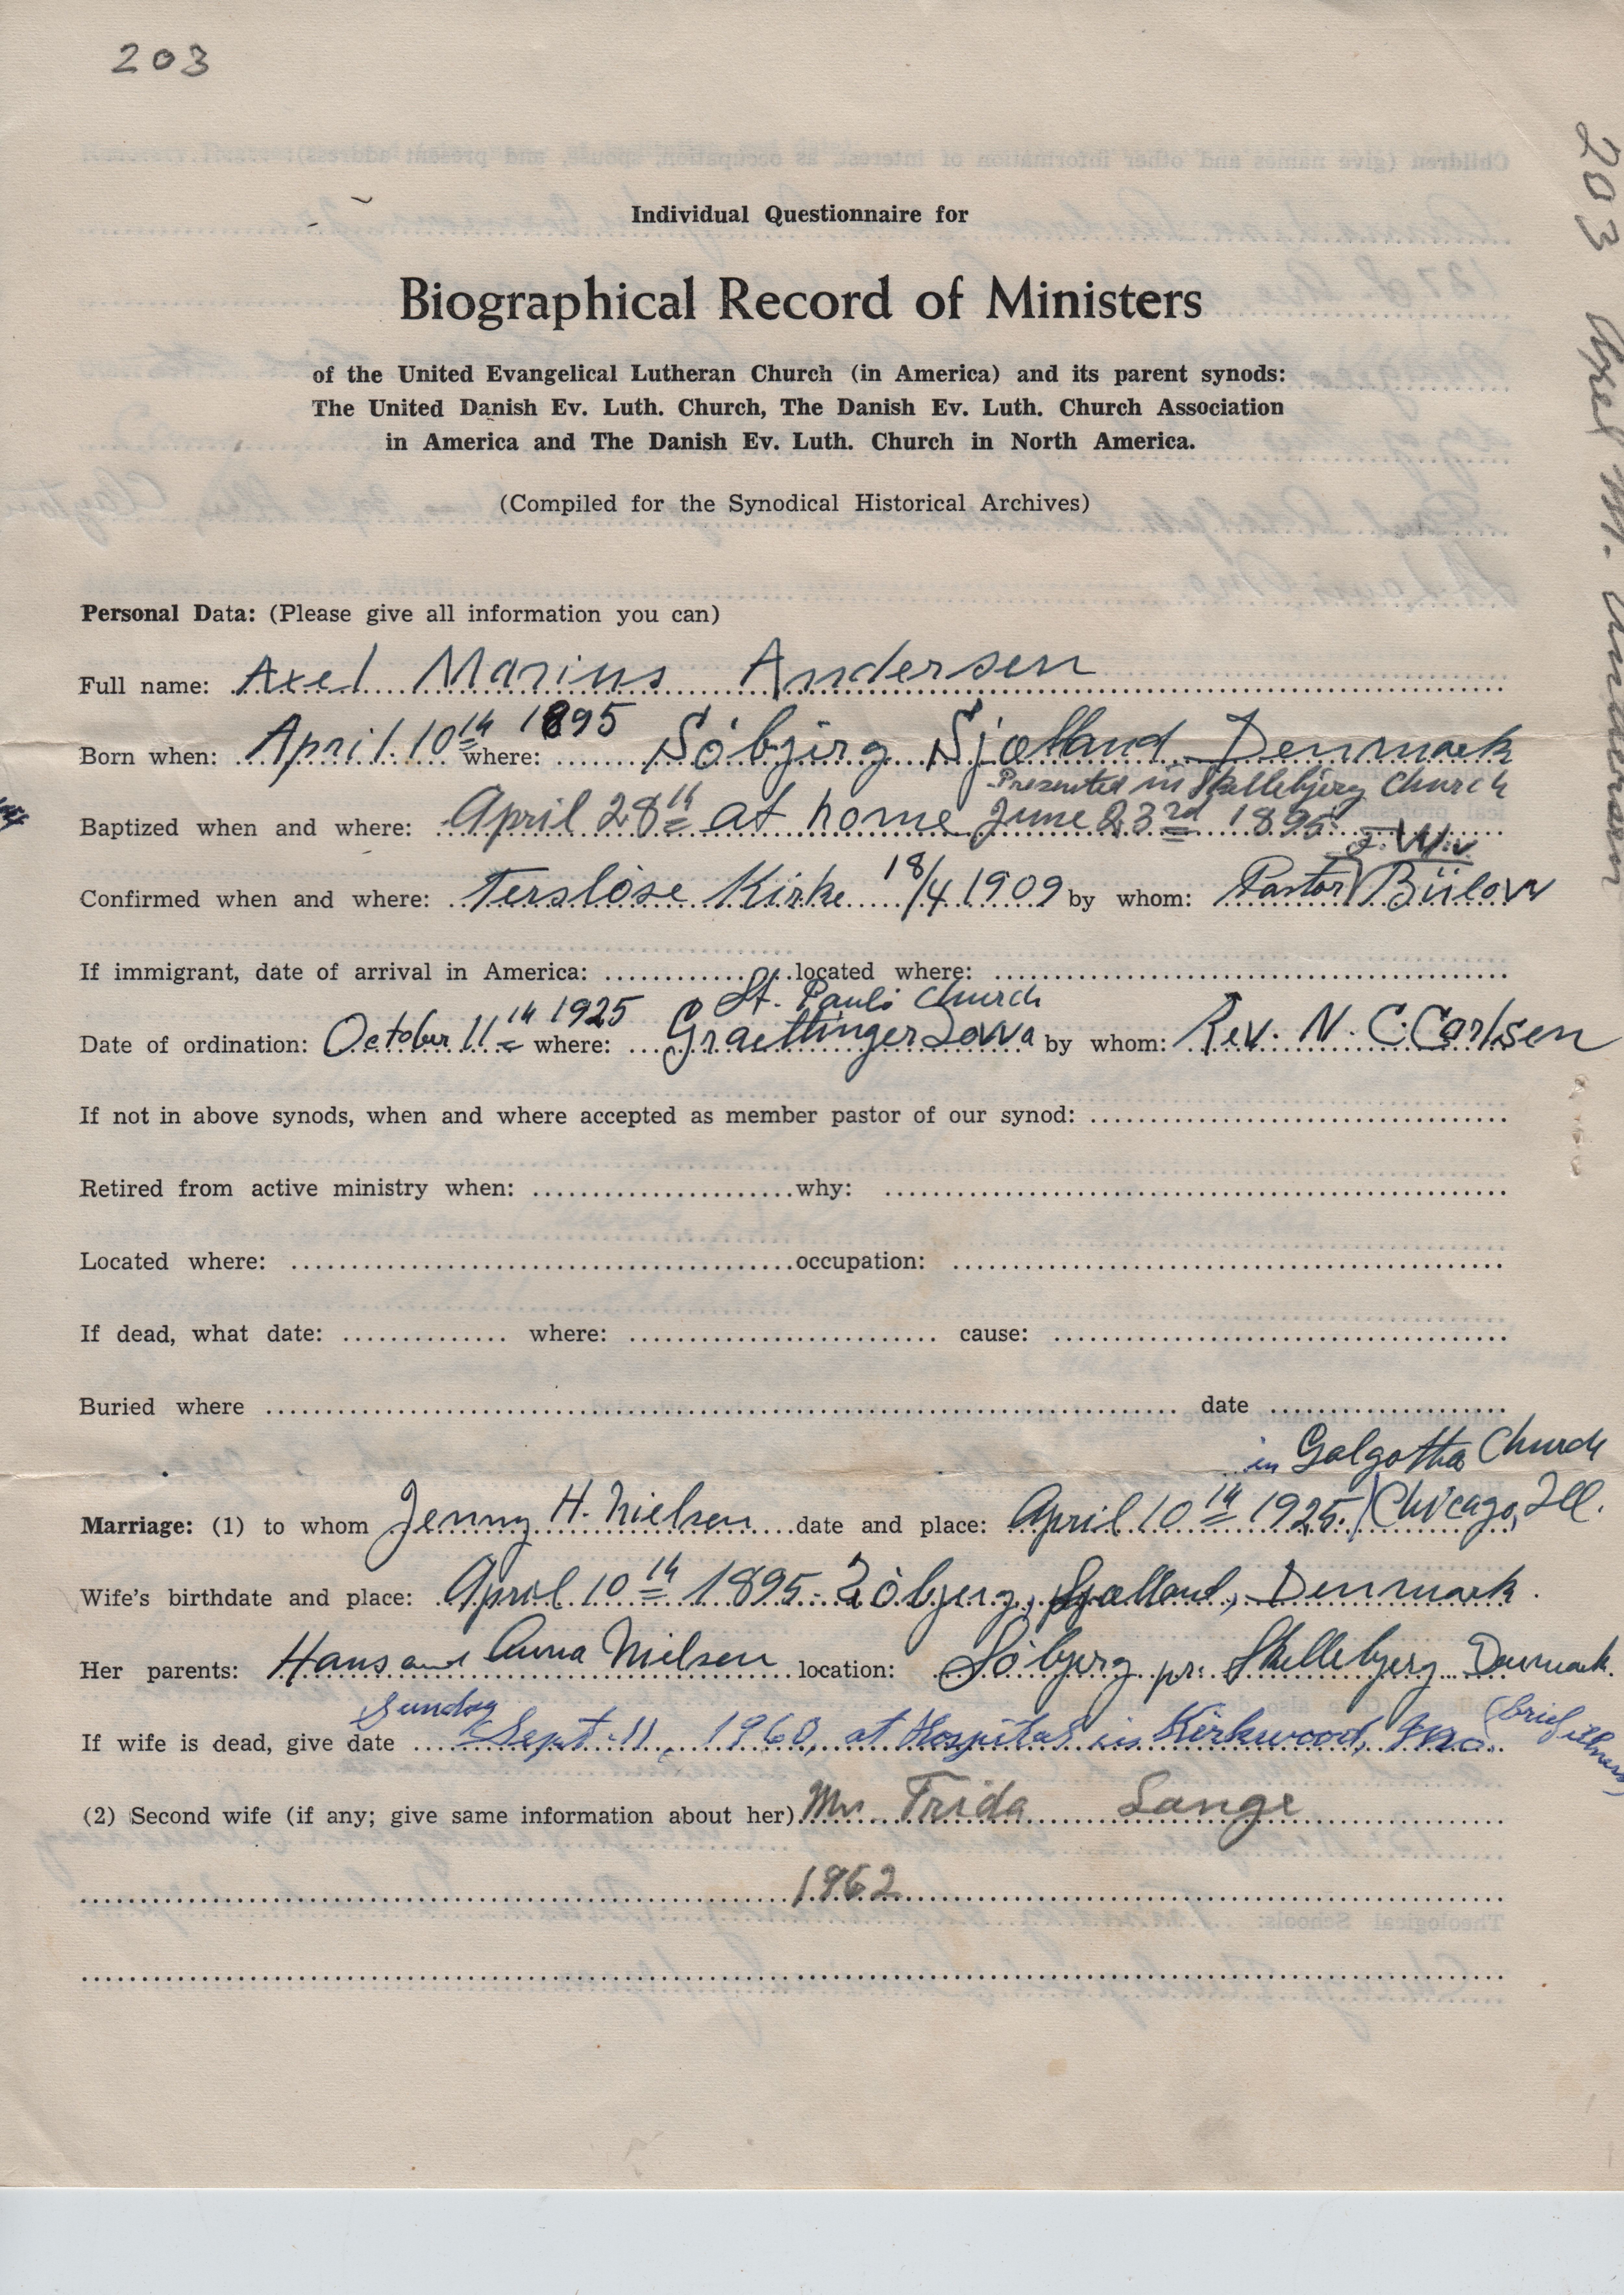 203
203 Axel M. Andersen
Individual Questionnaire for
Biographical Record of Ministers
of the United Evangelical Lutheran Church (in America) and its parent synods:
The United Danish Ev. Luth. Church, The Danish Ev. Luth. Church Association
in America and The Danish Ev. Luth. Church in North America.
(Compiled for the Synodical Historical Archives)
Personal Data: (Please give all information you can)
Full name: Axel Marius Andersen
Born when: April 10th 1895 where: Sóbjerg Sjælland Denmark
Presented in Skellebjerg Church
Baptized when and where: April 28th at home June 23rd 1895
Confirmed when and where: Terslöse Kirke 18/4 1909 by whom: Pastor Bülow
If immigrant, date of arrival in America: located where:
St. Pauls Church
Date of ordination: October 11th 1925 where: Graettinger Iowa by whom: Rev. N. C. Carlsen
If not in above synods, when and where accepted as member pastor of our synod:
Retired from active ministry when: why:
Located where: occupation:
If dead, what date: where: cause:
Buried where date
in Golgotha Church
Marriage: (1) to whom Jenny H. Nielsen date and place: April 10th 1925. Chicago, Ill.
Wife's birthdate and place: April 10th 1895. Sóbjerg, Sjælland, Denmark.
Her parents: Hans and Anna Nielsen location: Sóbjerg pr. Skellebjerg Denmark.
Sunday
If wife is dead, give date Sept. 11, 1960, at Hospital in Kirkwood, Mo. (brief illness)
(2) Second wife (if any; give same information about her) Mrs Frida Lange
1962